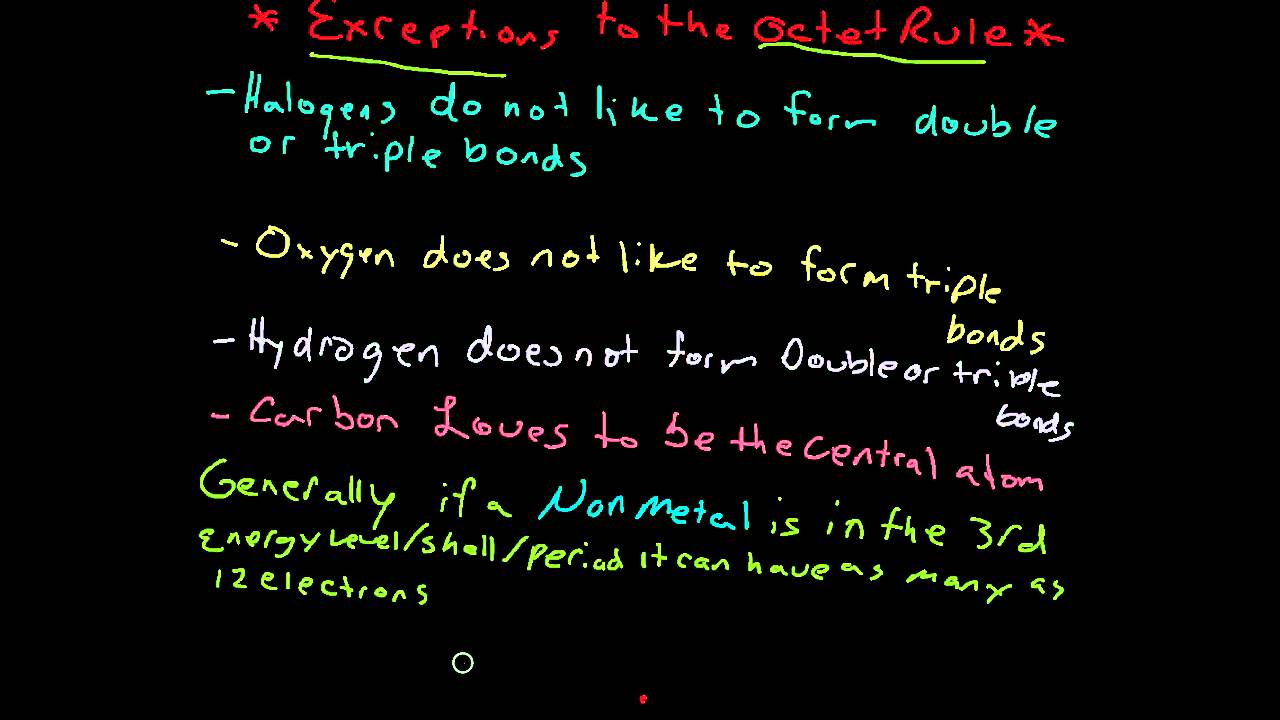 * Exceptions to the Octet Rule *
- Halogens do not like to form double
or triple bonds
- Oxygen does not like to form triple
bonds
- Hydrogen does not form Double or trible
bonds
- Carbon Loves to be the central atom
Generally if a Nonmetal is in the 3rd
energy level/shell/period it can have as many as
12 electrons